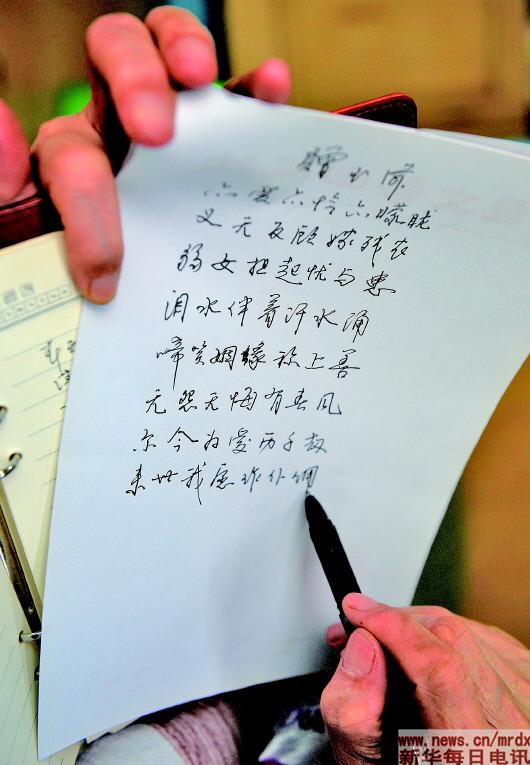 赠
六爱六怜六朦胧
义无反顾嫁残农
弱女担起忧与患
泪水伴着汗水涌
啼笑姻缘称上善
无怨无悔有春风
尔今为爱历千劫
来世我愿作仆佣
www.news.cn/mrdx
新华每日电讯